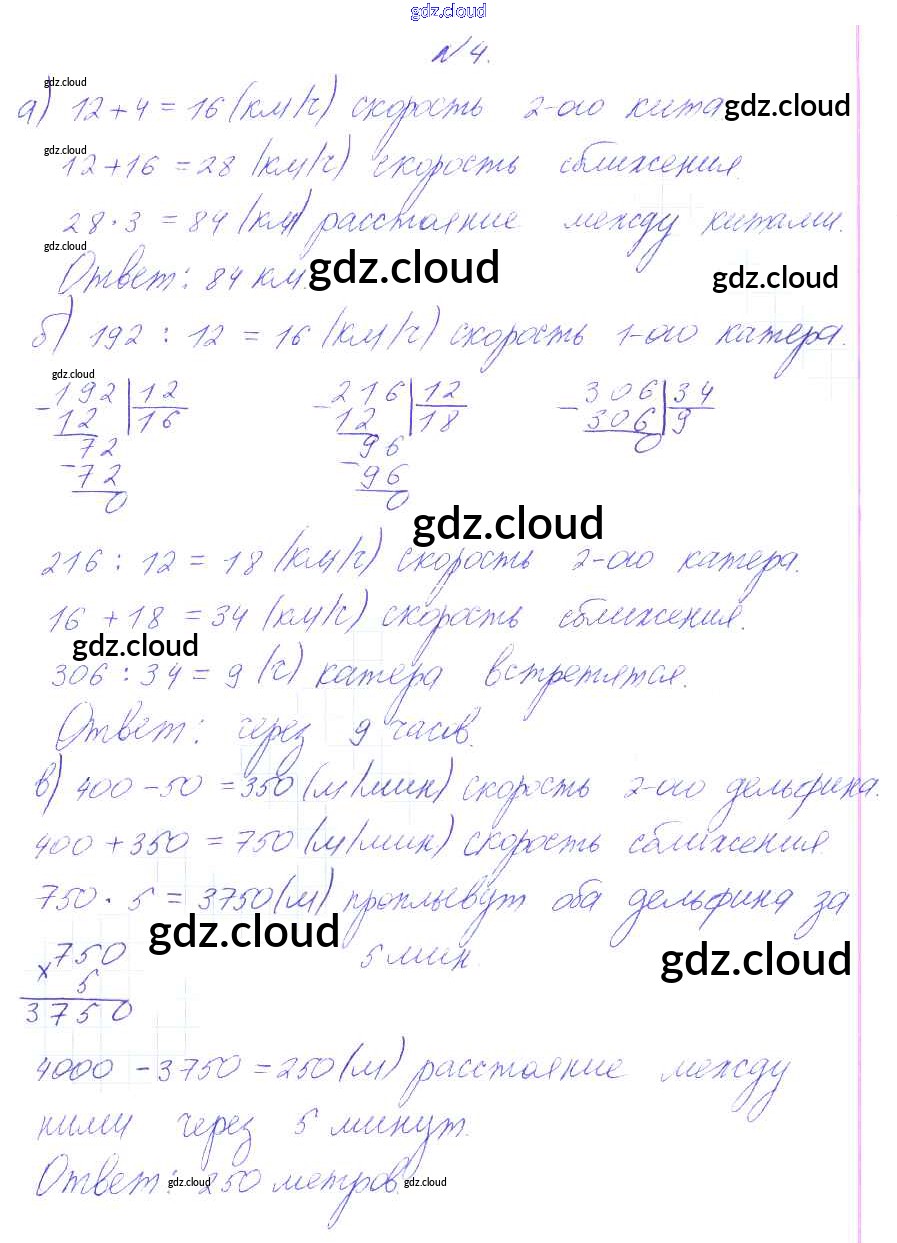 gdz.cloud
№4.
gdz.cloud
а) 12+4=16 (км/ч) скорость 2-ого кита gdz.cloud
gdz.cloud
12+16=28 (км/ч) скорость сближения.
28·3=84 (км) расстояние между китами.
gdz.cloud
Ответ: 84 км. gdz.cloud gdz.cloud
б) 192 : 12 = 16 (км/ч) скорость 1-ого катера.
gdz.cloud
-192 | 12 -216 | 12 -306 | 34
12 | 16 12 | 18 306 | 9
72 96 0
-72 -96
0 0
gdz.cloud
216 : 12 = 18 (км/ч) скорость 2-ого катера.
16 + 18 = 34 (км/ч) скорость сближения.
gdz.cloud
306 : 34 = 9 (ч) катера встретятся.
Ответ: через 9 часов.
в) 400-50=350 (м/мин) скорость 2-ого дельфина.
400+350=750 (м/мин) скорость сближения.
750·5=3750 (м) проплывут оба дельфина за
gdz.cloud
×750 5 мин. gdz.cloud
5
3750
4000-3750=250 (м) расстояние между
ними через 5 минут.
Ответ: gdz.cloud 250 метров. gdz.cloud